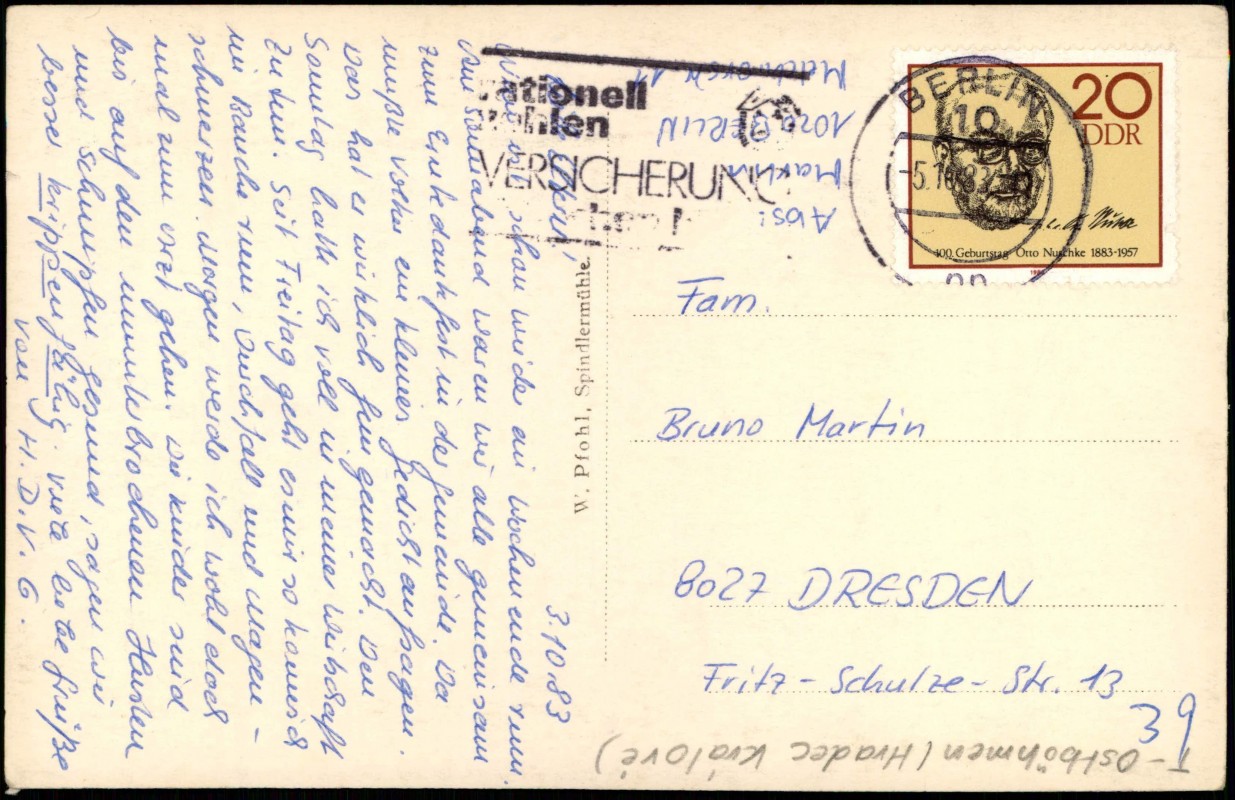 3.10.83
schon wieder ein Wochenende rum.
Am Sonnabend waren wir alle gemeinsam
zum Erntedankfest in der Gemeinde. Da
mußte Volker ein kleines Gedicht aufsagen.
Das hat er wirklich fein gemacht. Den
Sonntag hatte ich voll in meiner Wirtschaft
zu tun. Seit Freitag geht es mir so komisch
im Bauch rum, Durchfall und Magen-
schmerzen. Morgen werde ich wohl doch
mal zum Arzt gehen. Die Kinder sind
bis auf den ununterbrochenen Husten
und Schnupfen gesund, sagen wir
besser krippenfähig. Viele liebe Grüße
von H. D. V. C.
W. Pfohl, Spindlermühle.
Abs:
Martin
1020 BERLIN
rationell
wählen
VERSICHERUNG
BERLIN
10
-5.10.83
20
DDR
100. Geburtstag Otto Nuschke 1883-1957
Fam.
Bruno Martin
8027 DRESDEN
Fritz-Schulze-Str. 13
39
T-Ostböhmen (Hradec Králové)